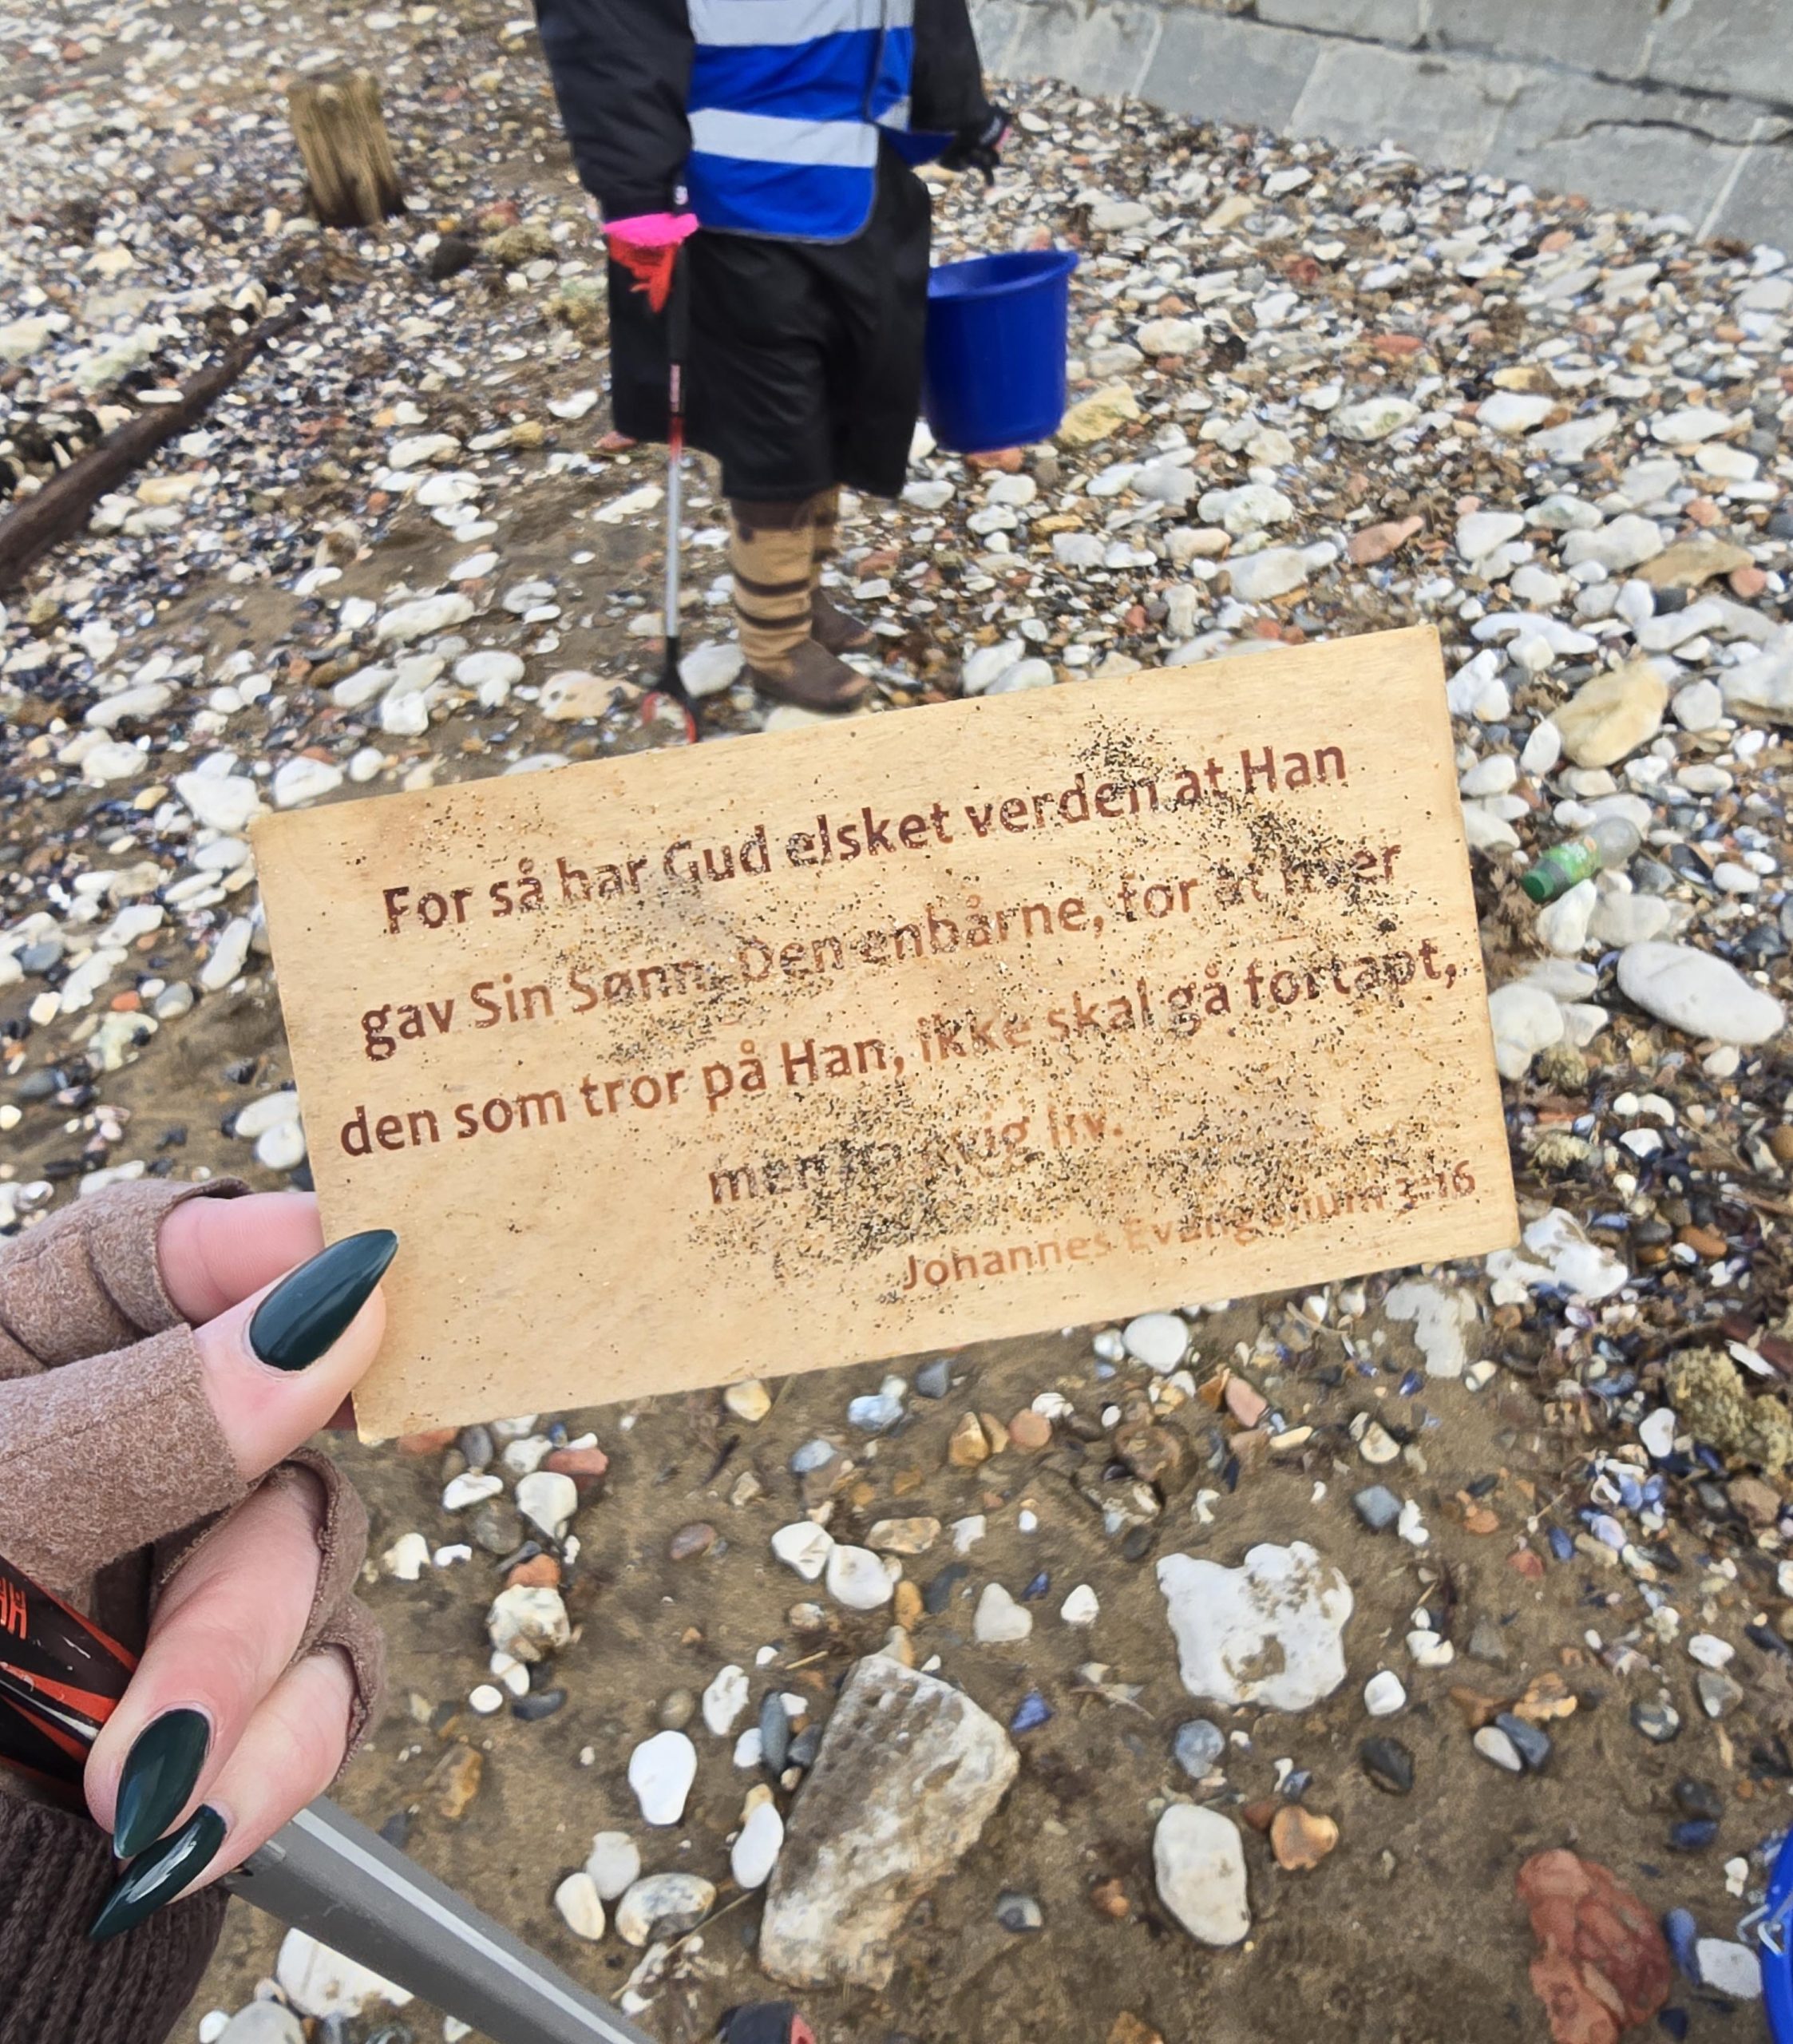 For så har Gud elsket verden at Han
gav Sin Sønn, Den enbårne, for at hver
den som tror på Han, ikke skal gå fortapt,
men ha evig liv.
Johannes Evangelium 3:16